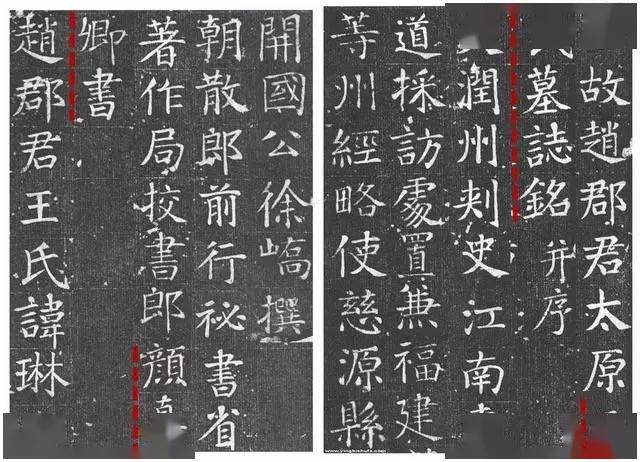 故趙郡君太原
墓誌銘并序
潤州刾史江南
道採訪處置兼福建
等州經略使慈源縣
開國公徐嶠撰
朝散郎前行祕書省
著作局挍書郎顔
卿書
趙郡君王氏諱琳
www.yingbishufa.com